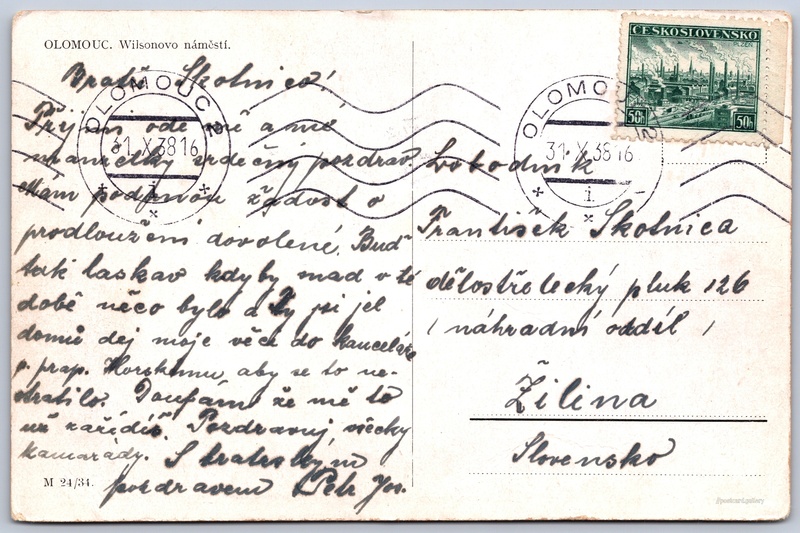 OLOMOUC. Wilsonovo náměstí.
Bratře Skotnico!
Přijmi ode mě a mé
manželky srdečný pozdrav.
Mám podanou žádost o
prodloužení dovolené. Buď
tak laskav kdyby snad v té
době něco bylo a ty si jel
domů dej moje věci do kanceláře
p. prap. Horskému aby se to ne-
stratilo. Doufám že mě to
už zařídíš. Pozdravuj všecky
kamarády. S bratrským
pozdravem Petr Jos.
M 24/34.
OLOMOUC 2
31.X.38 16
1
OLOMOUC 2
31.X.38 16
1
ČESKOSLOVENSKO
PLZEŇ
50h 50h
Svobodník
František Skotnica
dělostřelecký pluk 126
/ náhradní oddíl /
Žilina
Slovensko